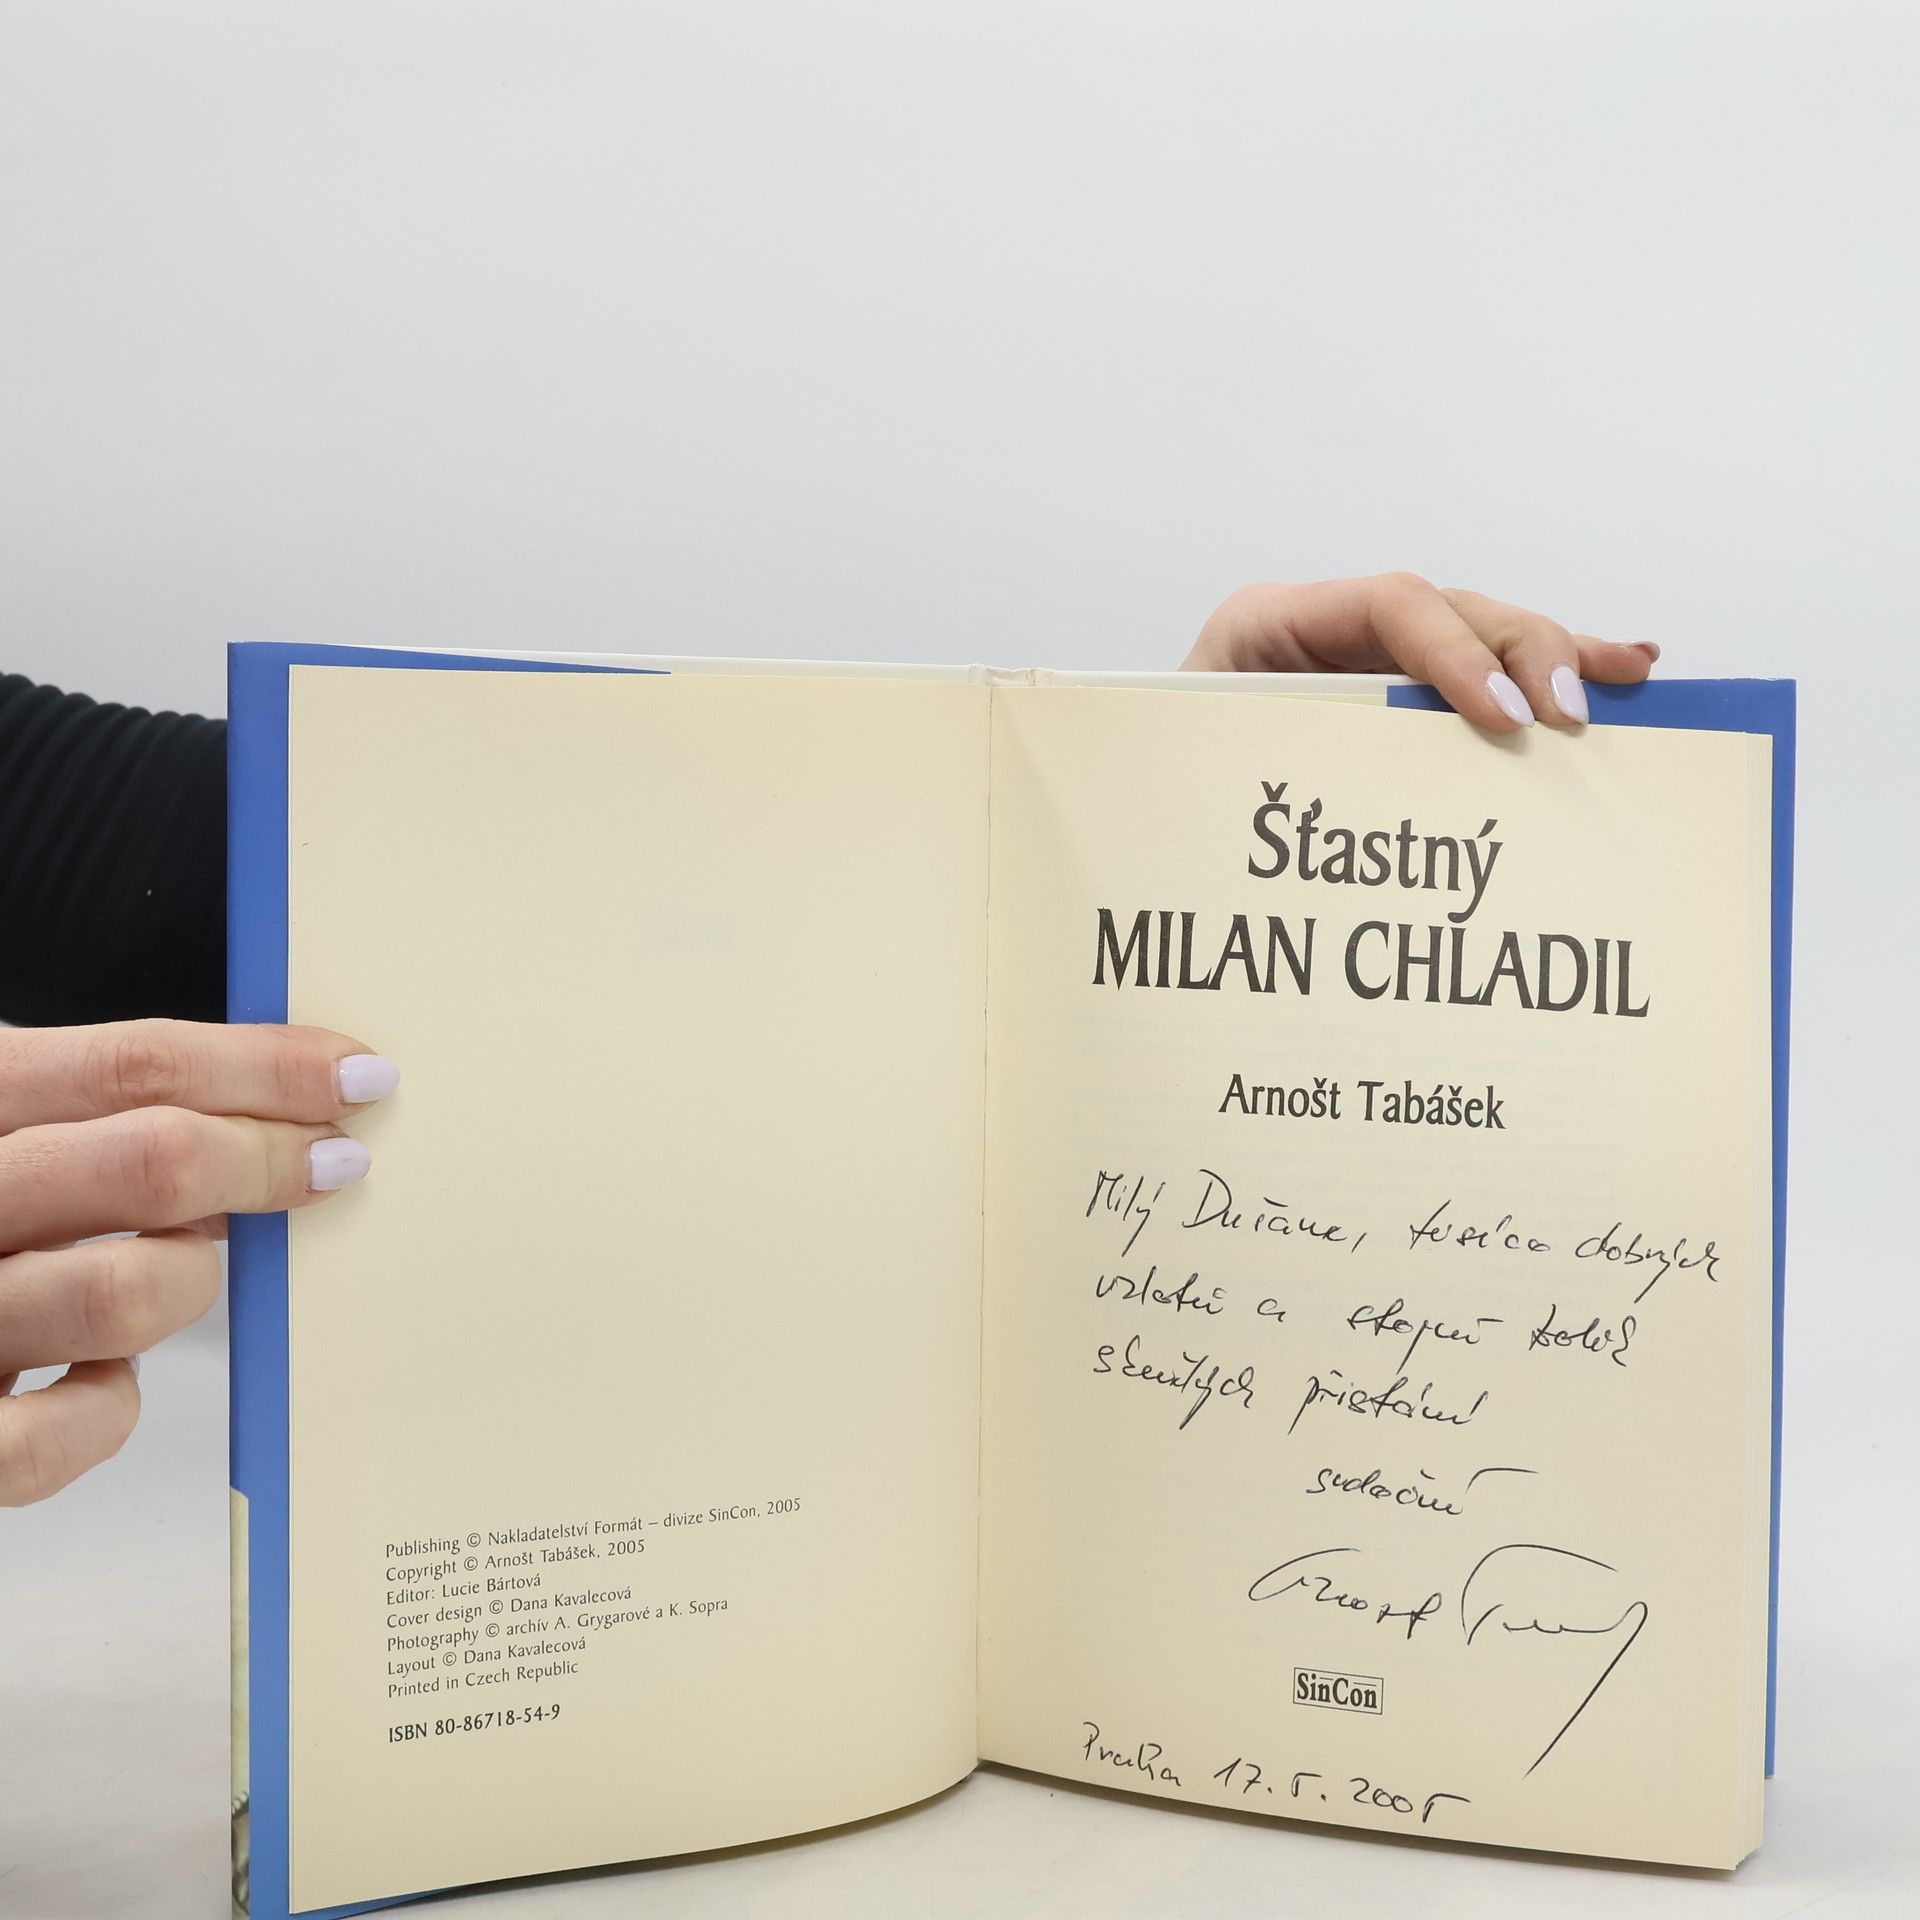 Publishing © Nakladatelství Formát – divize SinCon, 2005
Copyright © Arnošt Tabášek, 2005
Editor: Lucie Bártová
Cover design © Dana Kavalecová
Photography © archív A. Grygarové a K. Sopra
Layout © Dana Kavalecová
Printed in Czech Republic
ISBN 80-86718-54-9
Šťastný
MILAN CHLADIL
Arnošt Tabášek
Milý Dušane, tisíce dobrých
vzletů a stejně tolik
skvělých přistání
srdečně
Arnošt
SinCon
Praha 17. 5. 2005